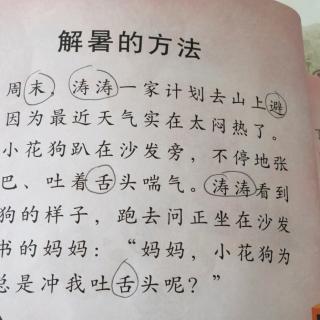 解暑的方法
周末，涛涛一家计划去山上避
因为最近天气实在太闷热了。
小花狗趴在沙发旁，不停地张
巴、吐着舌头喘气。涛涛看到
狗的样子，跑去问正坐在沙发
书的妈妈：“妈妈，小花狗为
总是冲我吐舌头呢？”